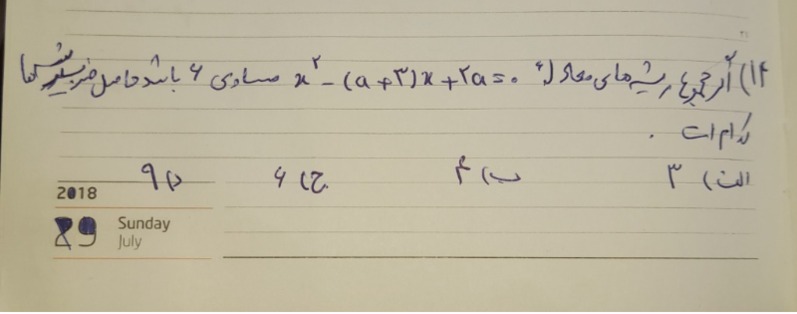 ۱۴) اگر مجموع ریشه‌های معادلهٔ x² - (a+۳)x + ۲a = ۰ مساوی ۶ باشد حاصل ضرب ریشه‌ها
کدام است.
الف) ۳ ب) ۴ ج) ۶ د) ۹
2018
29 Sunday
July